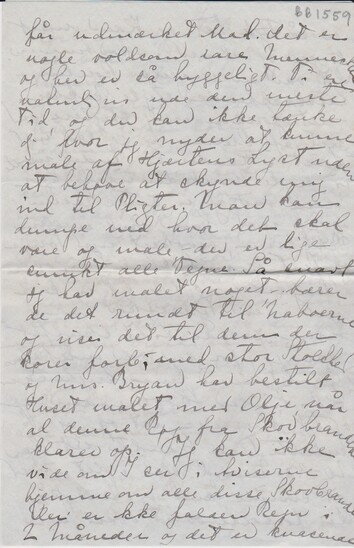 BB1559
får udmærket Mad. det er
nogle voldsom rare Mennesker
og her er så hyggeligt. Vi er
naturligvis ude den meste
Tid og du kan ikke tænke
d. hvor jeg nyder at kunne
male af Hjærtens Lyst uden
at behøve at skynde mig
ind til Pligter. Man kan
dumpe ned hvor det skal
være og male – der er lige
smukt alle Vegne. Så snart
jeg har malet noget bærer
de det rundt til Naboerne
og vises det til dem der
kører forbi, med stor Stolthed
og Mrs. Bryan har bestilt
Huset malet med Olje, når
al denne Røg fra Skovbranden
klarer op. Jeg kan ikke
vide om I ser i Aviserne
hjemme om alle disse Skovbrande
Her er ikke falden Regn i
2 Måneder og det er knasende